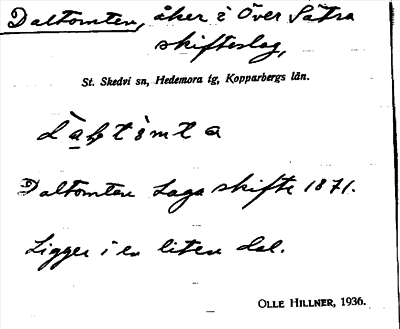 Daltomten, åker i Över Sätra
skifteslag,
St. Skedvi sn, Hedemora tg, Kopparbergs län.
Daltomten Laga skifte 1871.
Ligger i en liten dal.
OLLE HILLNER, 1936.